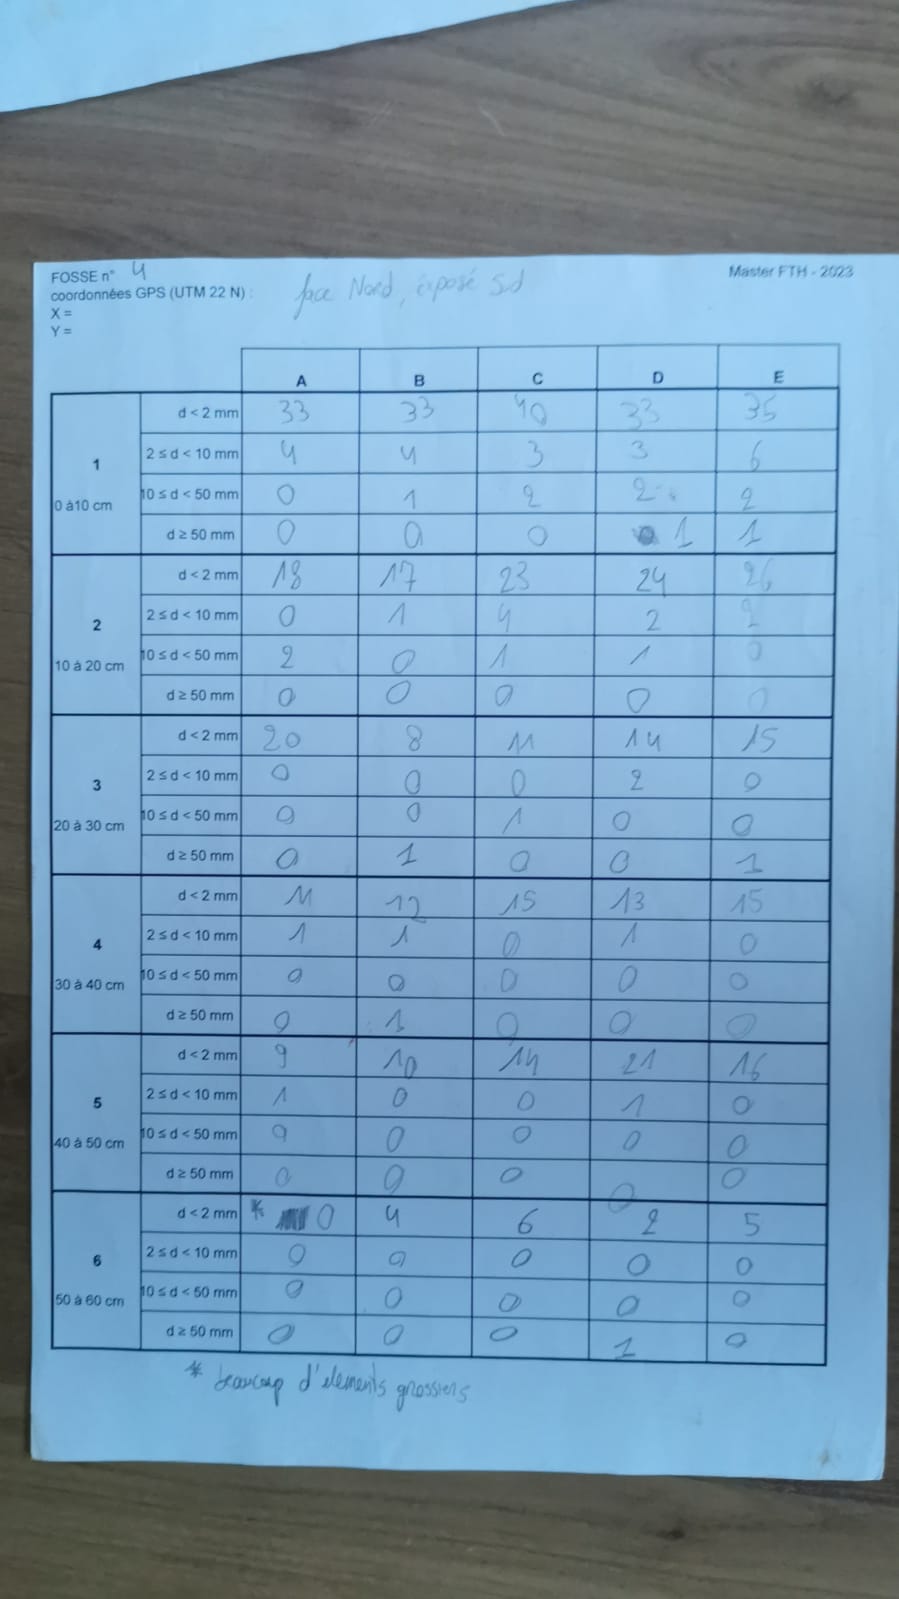 FOSSE n° 4
Master FTH - 2023
coordonnées GPS (UTM 22 N) :
face Nord, exposé Sud
X =
Y =
A B C D E
1
0 à10 cm
d < 2 mm 33 33 40 33 35
2 ≤ d < 10 mm 4 4 3 3 6
10 ≤ d < 50 mm 0 1 2 2 2
d ≥ 50 mm 0 0 0 1 1
2
10 à 20 cm
d < 2 mm 18 17 23 24 26
2 ≤ d < 10 mm 0 1 4 2 2
10 ≤ d < 50 mm 2 0 1 1 0
d ≥ 50 mm 0 0 0 0 0
3
20 à 30 cm
d < 2 mm 20 8 11 14 15
2 ≤ d < 10 mm 0 0 0 2 0
10 ≤ d < 50 mm 0 0 1 0 0
d ≥ 50 mm 0 1 0 0 1
4
30 à 40 cm
d < 2 mm 11 12 15 13 15
2 ≤ d < 10 mm 1 1 0 1 0
10 ≤ d < 50 mm 0 0 0 0 0
d ≥ 50 mm 0 1 0 0 0
5
40 à 50 cm
d < 2 mm 9 10 14 21 16
2 ≤ d < 10 mm 1 0 0 1 0
10 ≤ d < 50 mm 0 0 0 0 0
d ≥ 50 mm 0 0 0 0 0
6
50 à 60 cm
d < 2 mm * 0 4 6 2 5
2 ≤ d < 10 mm 0 0 0 0 0
10 ≤ d < 50 mm 0 0 0 0 0
d ≥ 50 mm 0 0 0 1 0
* beaucoup d'elements grossiers